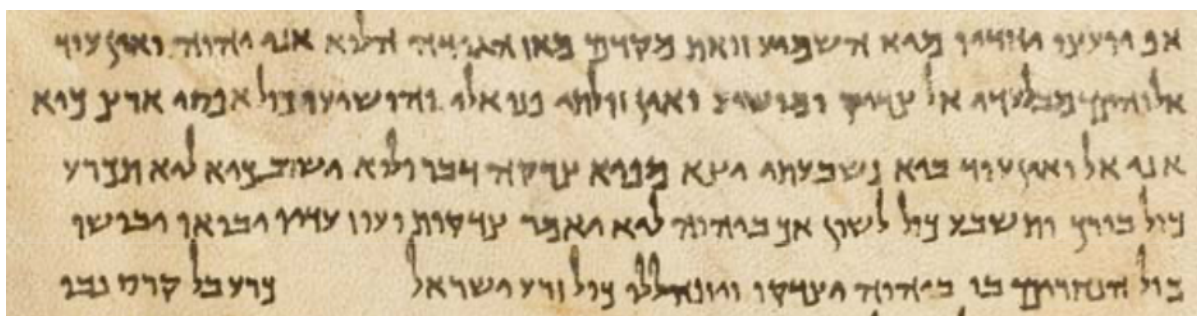 אך ועצו יחדיו מיא השמיע זואת מקדם מאז הגידה הלוא אני יהוה ואין עוד
אלוהים מבלעדי אל צדיק ומושיע ואין זולתי פנו אלי והושיעו כול אפסי ארץ כיא
אני אל ואין עוד ביא נשבעתי יצא מפיא צדקה דבר ולוא ישוב כיא ליא תכרע
כול ברך ותשבע כול לשון אך ביהוה ליא יאמר צדקות ועוז עדיו יבואו ויבושו
כול הנחרים בו ביהוה יצדקו ויתהללו כול זרע ישראל כרע בל קרס נבו